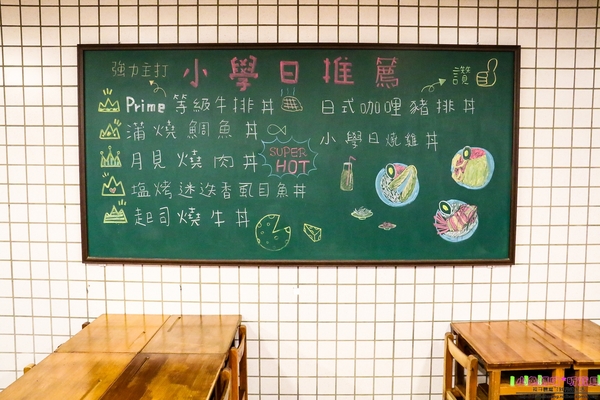 強力主打 小學日推薦 讚
Prime 等級牛排丼
蒲燒鯛魚丼
月見燒肉丼
塩烤迷迭香虱目魚丼
起司燒牛丼
SUPER
HOT
日式咖哩豬排丼
小學日燒雞丼